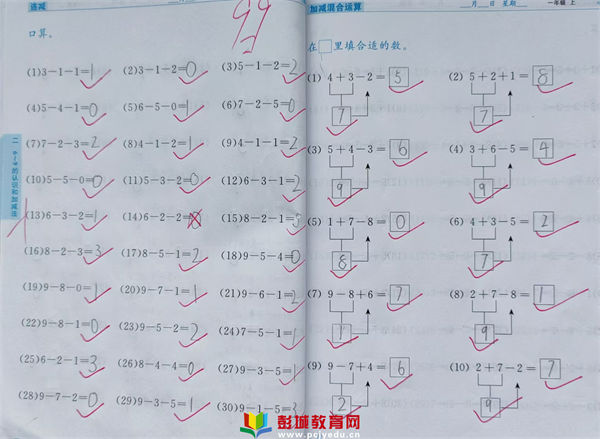 连减
口算。
99
(1)3-1-1=1 (2)3-1-2=0 (3)5-1-2=2
(4)5-4-1=0 (5)6-5-0=1 (6)7-2-5=0
(7)7-2-3=2 (8)4-1-2=1 (9)4-1-1=2
(10)5-5-0=0 (11)5-3-2=0 (12)6-3-1=2
(13)6-3-2=1 (14)6-2-2= (15)8-2-1=5
(16)8-2-3=3 (17)8-5-1=2 (18)9-5-4=0
(19)9-8-0=1 (20)9-7-1=1 (21)9-6-1=2
(22)9-8-1=0 (23)9-5-2=2 (24)7-5-1=1
(25)6-2-1=3 (26)8-4-4=0 (27)9-3-5=1
(28)9-7-2=0 (29)9-3-5=1 (30)9-1-5=3
的认识和加减法
加减混合运算
月 日 星期
一年级 上
在□里填合适的数。
(1) 4+3-2=5 (2) 5+2+1=8
7 7
(3) 5+4-3=6 (4) 3+6-5=4
9 9
(5) 1+7-8=0 (6) 4+3-5=2
8 7
(7) 9-8+6=7 (8) 2+7-8=1
1 9
(9) 9-7+4=6 (10) 2+7-2=7
2 9
彭城教育网
www.pcjyedu.cn